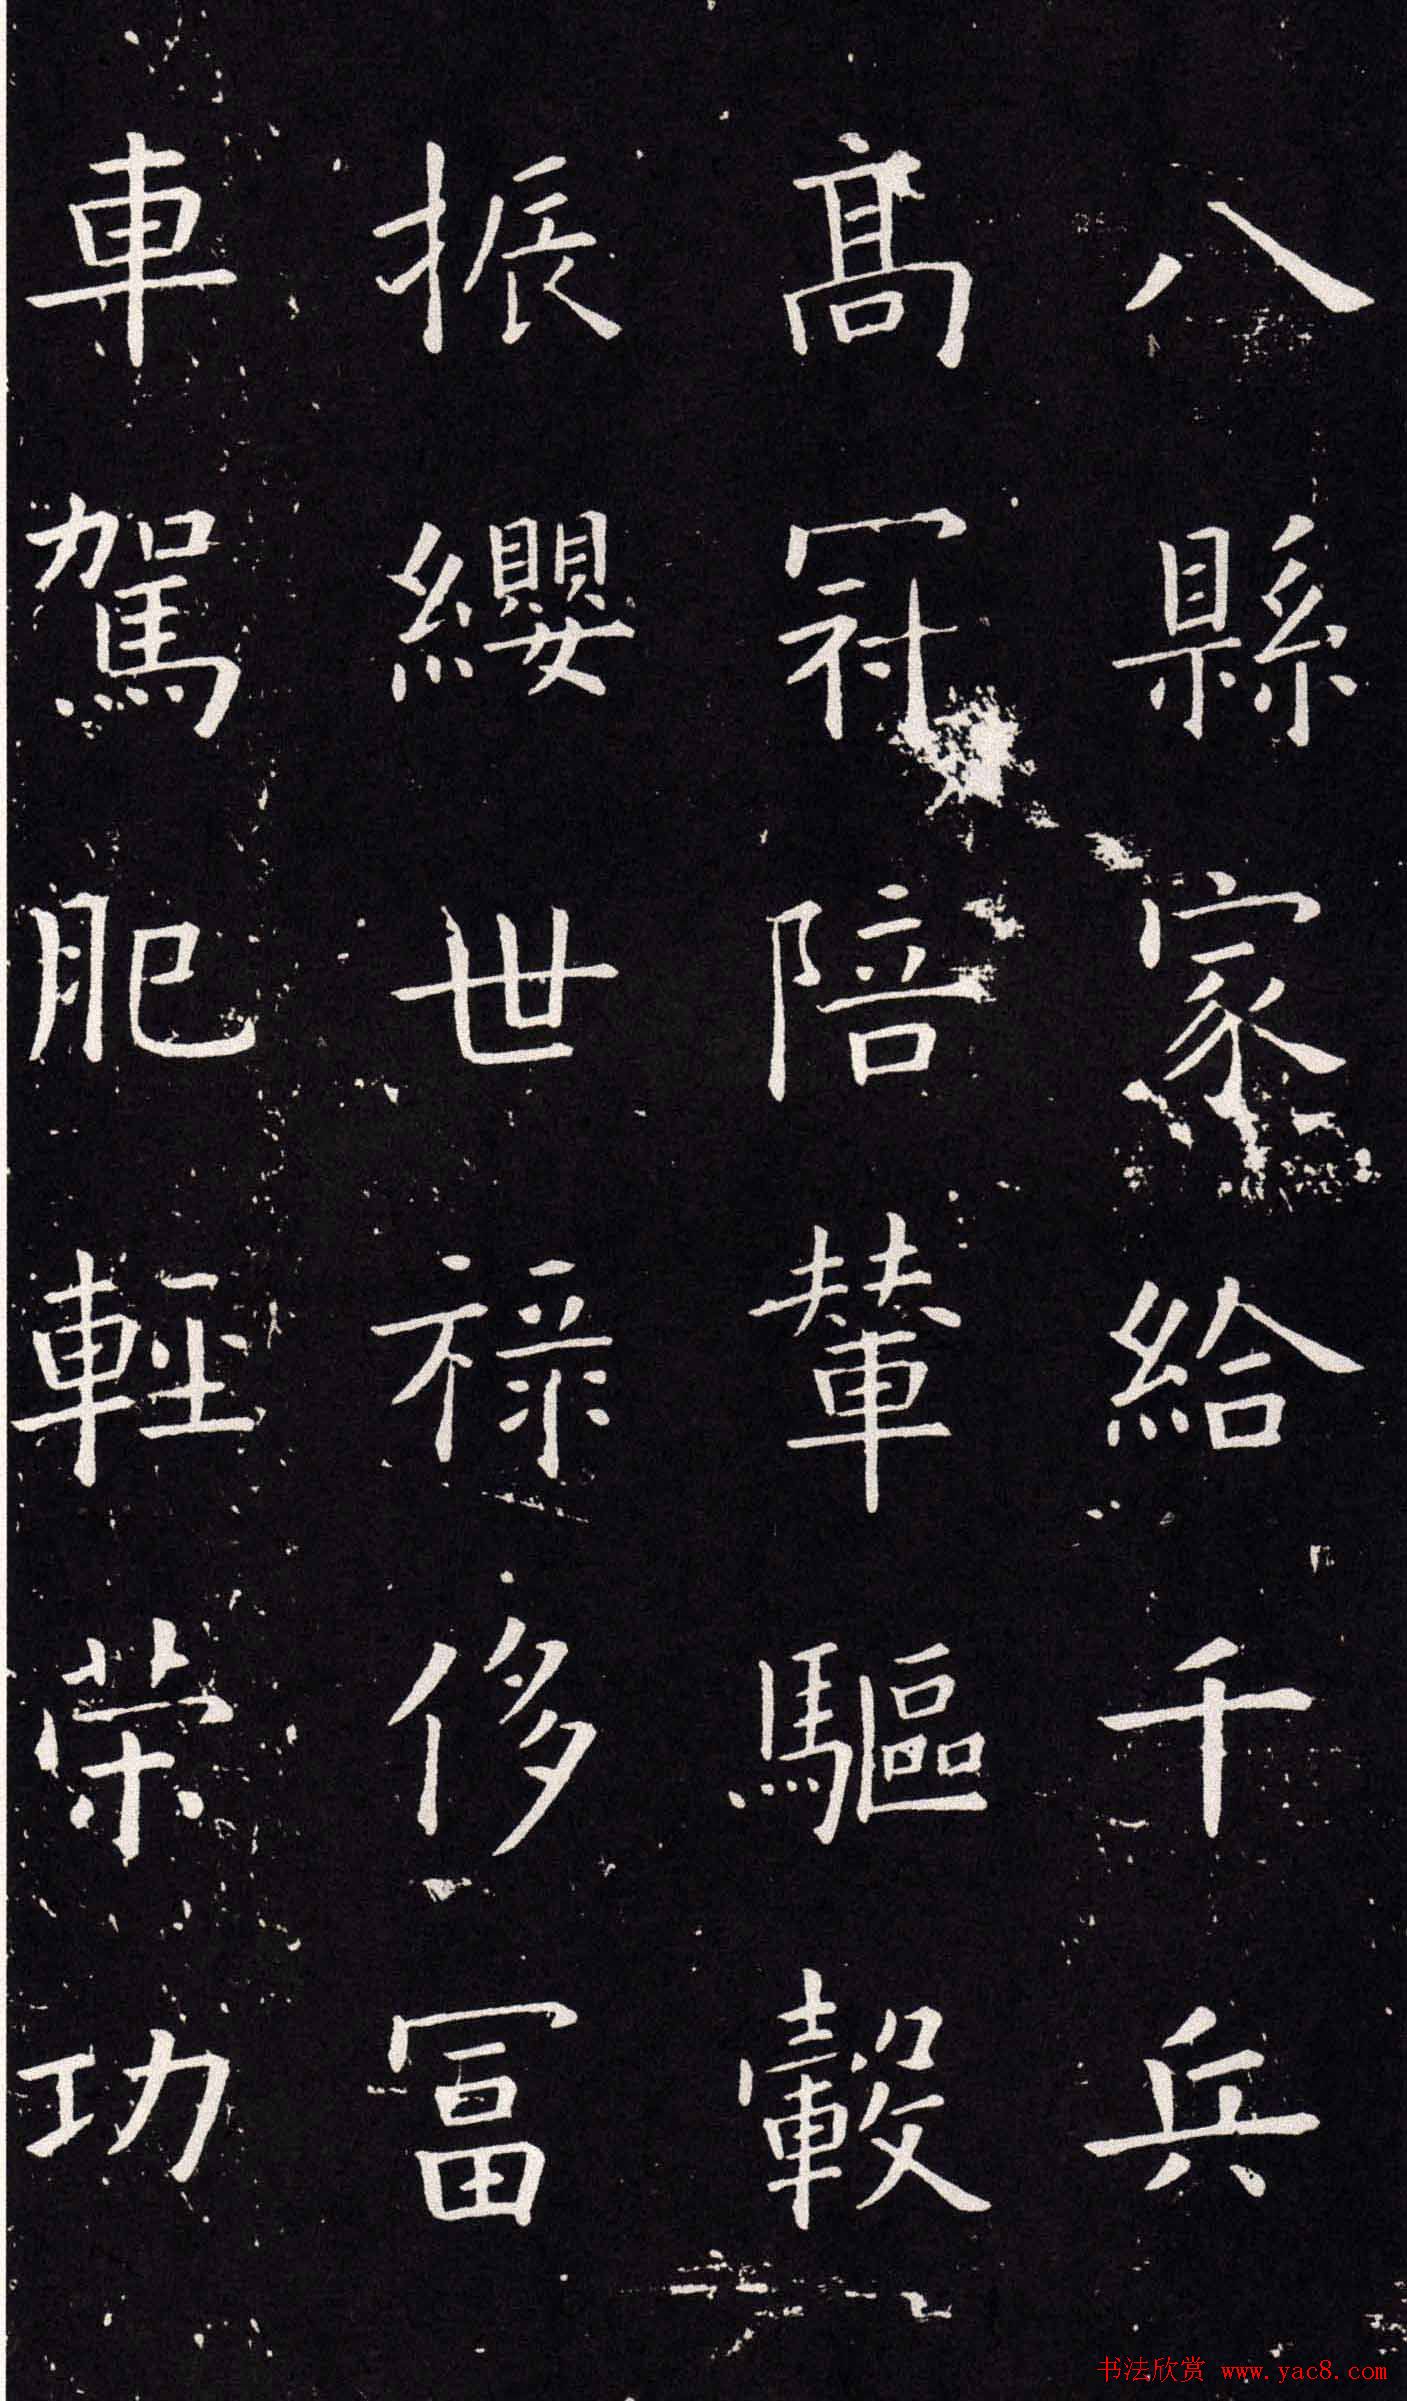 八縣家給千兵
高冠陪輦驅轂
振纓世祿侈冨
車駕肥輕榮功
书法欣赏 www.yac8.com